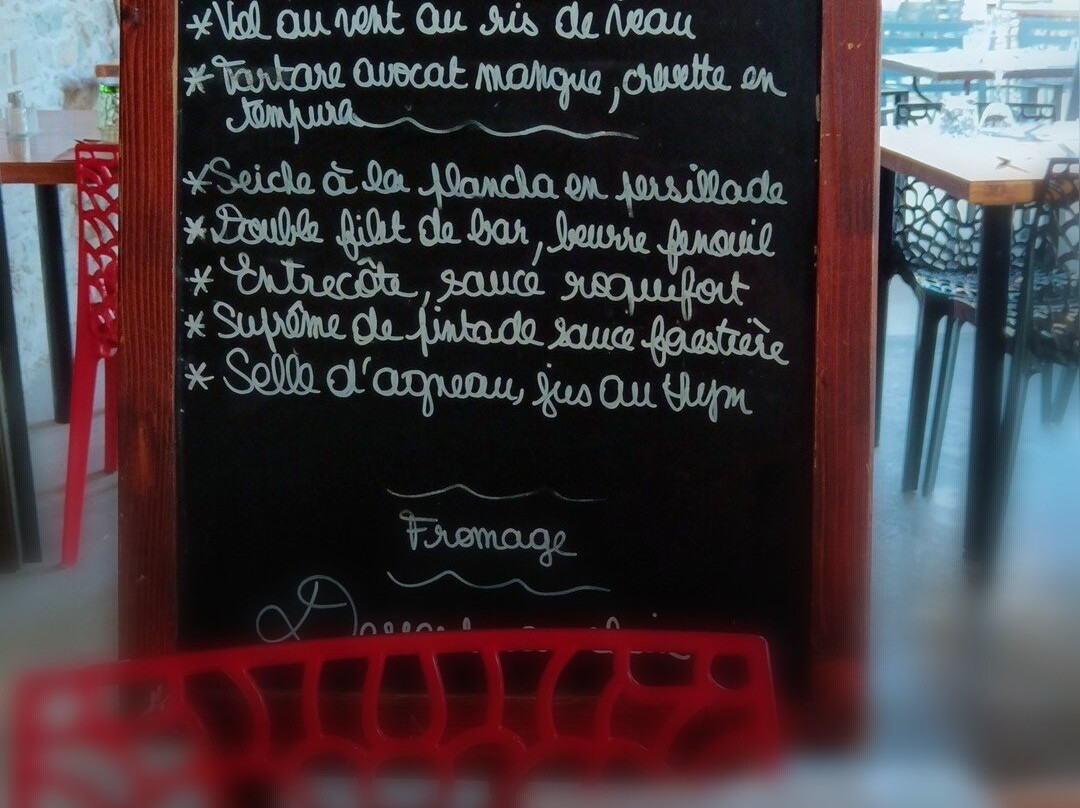 *Vol au vent au ris de veau
*Tartare avocat mangue, crevette en
tempura
*Seiche à la plancha en persillade
*Double filet de bar, beurre fenouil
* Entrecôte, sauce roquefort
* Suprême de pintade sauce forestière
* Selle d'agneau, jus au thym
Fromage